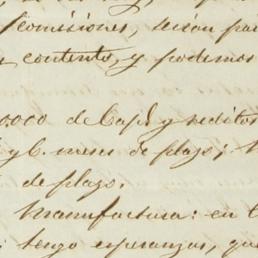 comisiones, serán pa
contento, y podemos
0.000 de Cap.l y reditos
y 6. meses de plazo;
de plazo.
Manufactura: en
tengo esperanzas, que